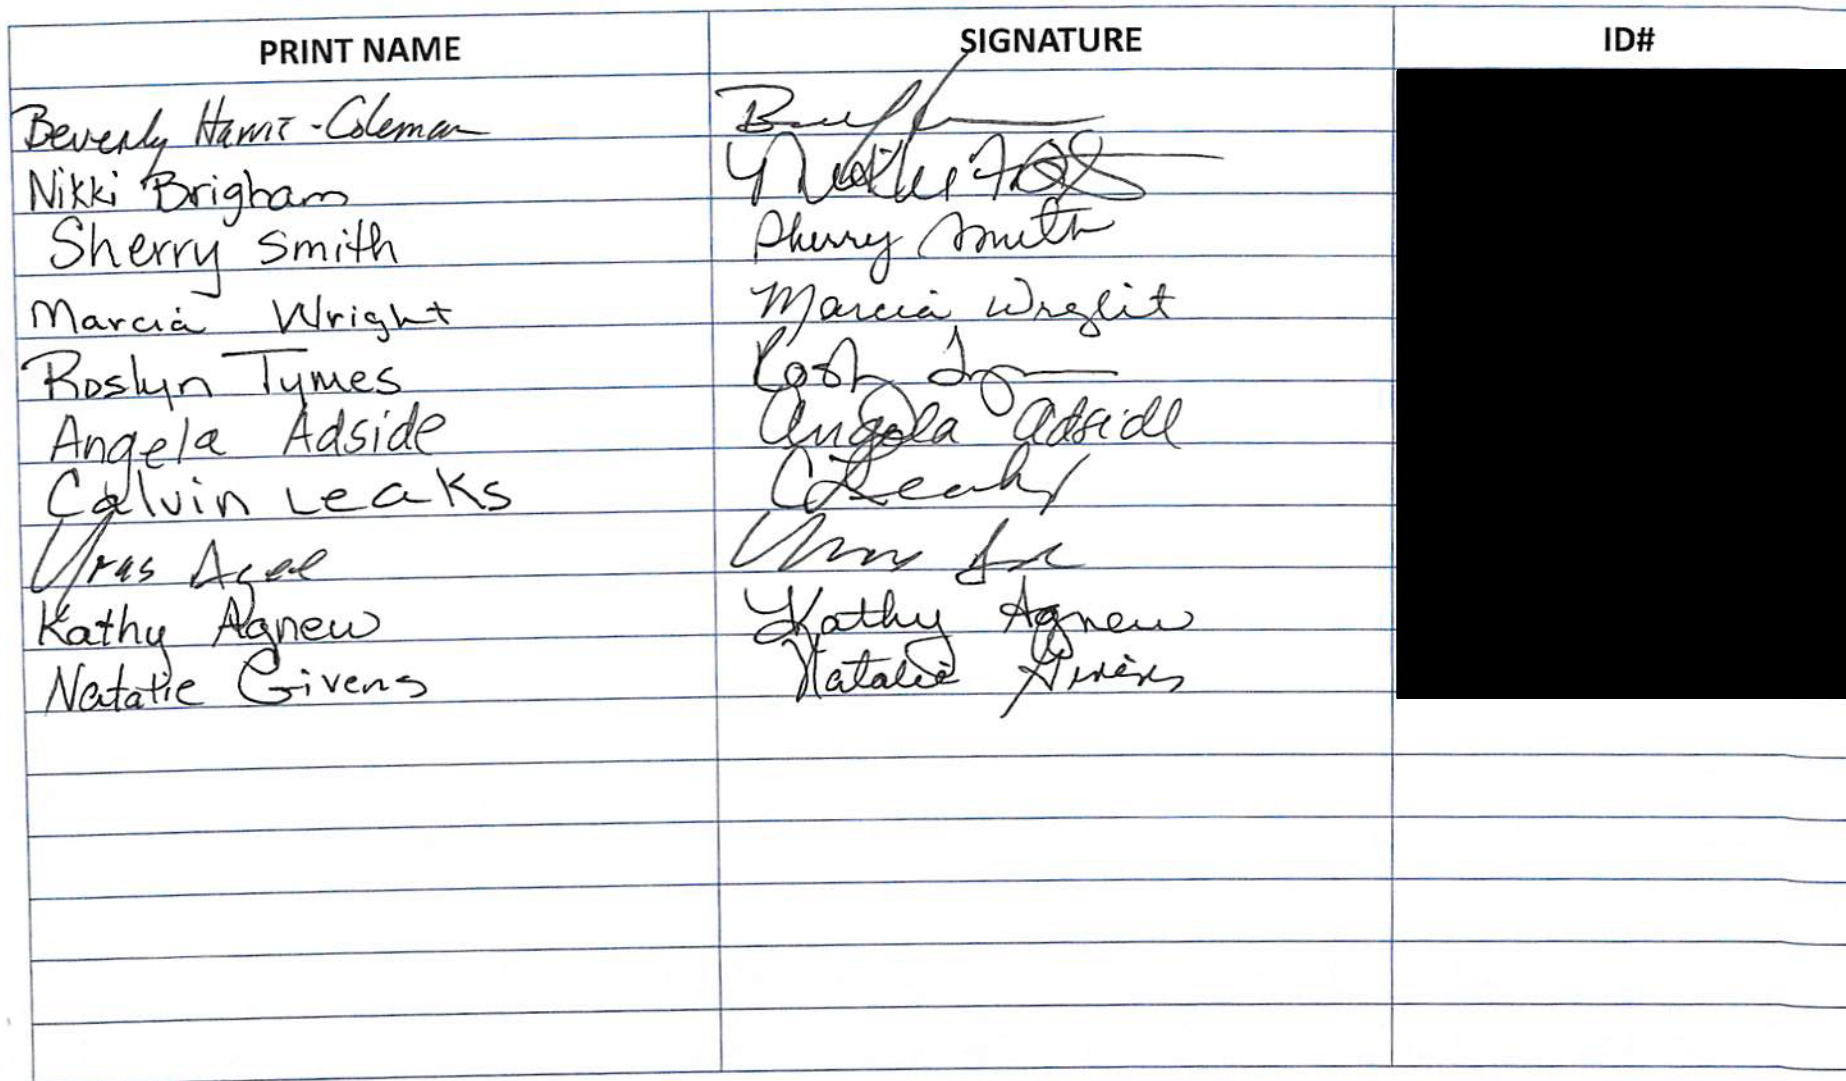 PRINT NAME SIGNATURE ID#
Beverly Harris-Coleman
Nikki Brigham
Sherry Smith Sherry Smith
Marcia Wright Marcia Wright
Roslyn Tymes
Angela Adside Angela Adside
Calvin Leaks CLeaks
Kathy Agnew Kathy Agnew
Natalie Givens Natalie Givens